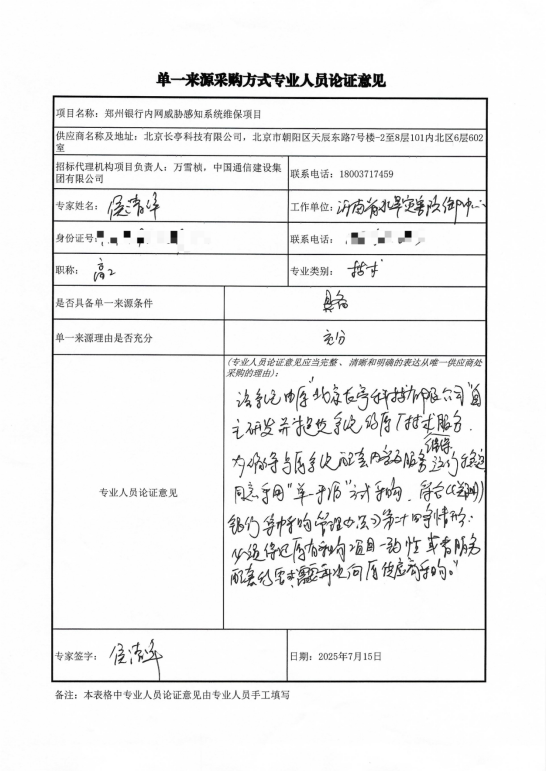 单一来源采购方式专业人员论证意见
项目名称：郑州银行内网威胁感知系统维保项目
供应商名称及地址：北京长亭科技有限公司，北京市朝阳区天辰东路7号楼-2至8层101内北区6层602
室
招标代理机构项目负责人：万雪桢，中国通信建设集
团有限公司
联系电话：18003717459
专家姓名：侯清
工作单位：河南省水旱灾害防御中心
身份证号：
联系电话：
职称：高工
专业类别：技术
是否具备单一来源条件
具备
单一来源理由是否充分
充分
专业人员论证意见
(专业人员论证意见应当完整、清晰和明确的表达从唯一供应商处
采购的理由)：
该系统由原"北京长亭科技有限公司"自
主研发并提供系统的原厂技术服务.
为确保与原系统配套内容服务维保运行稳定
同意采用"单一来源"方式采购.符合《郑州
银行集中采购管理办法》第二十四条情形:
必须保证原有采购项目一致性或者服务
配套的要求,需要再次向原供应商采购。"
专家签字：侯清
日期：2025年7月15日
备注：本表格中专业人员论证意见由专业人员手工填写